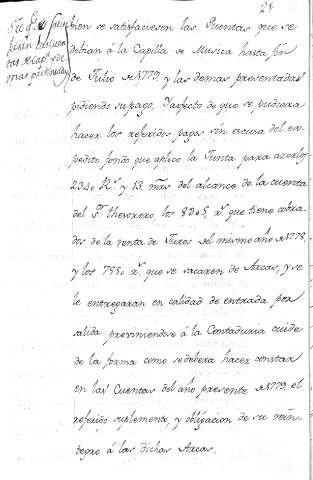 21
bien se satisfaciesen las Quentas que se
debian á la Capilla de Musica hasta fin
de Julio de 1779, y las demas presentadas
pidiendo su pago. Y aefecto de que se pudiera
hacer los referidos pagos sin escusa del ex-
pedito fondo que aplicó la Junta para azerlos
2340 Rs. y 13 mrs. del alcance de la cuenta
del Sr. Thesorero los 8305 rs. que tiene cobra-
dos de la renta de Juros del mismo año de 1778
y los 7550 rs. que se sacaren de Arcas, y se
le entregaran en calidad de entrada por
salida previniendose á la Contaduria cuide
de la forma como se debera hacer constar
en las Cuentas del año presente de 1779 el
referido suplemento, y obligacion de su rein-
tegro á las dichas Arcas.